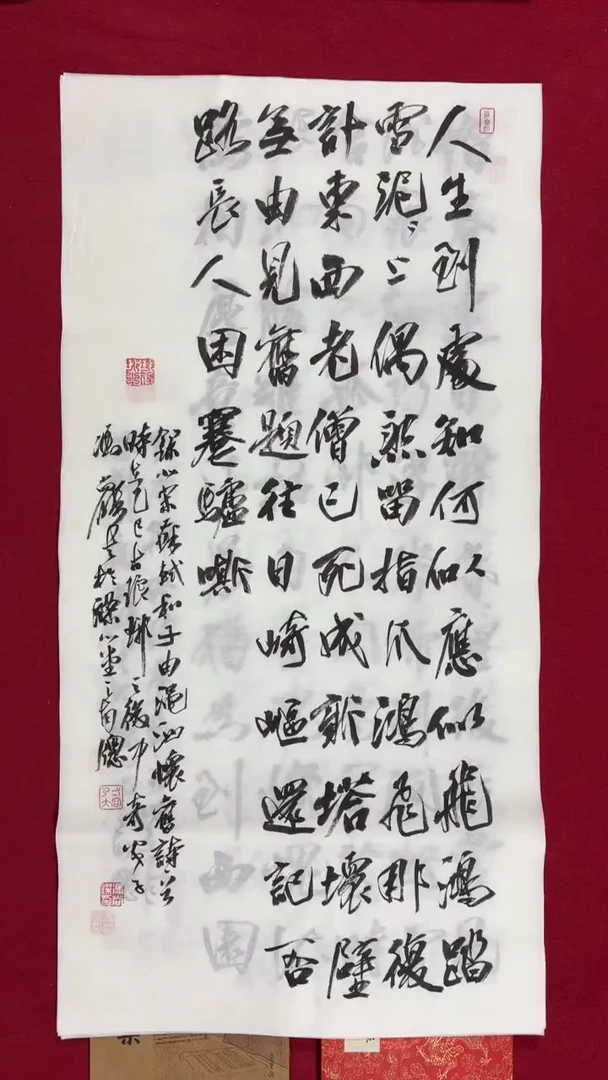 人生到處知何似應似飛鴻踏
雪泥〻上偶然留指爪鴻飛那復
計東西老僧已死成新塔壞壁
無由見舊題往日崎嶇還記否
路長人困蹇驢嘶
錄北宋蘇軾和子由澠池懷舊詩
時乙巳古琅邪之後
馮於堂之南窗